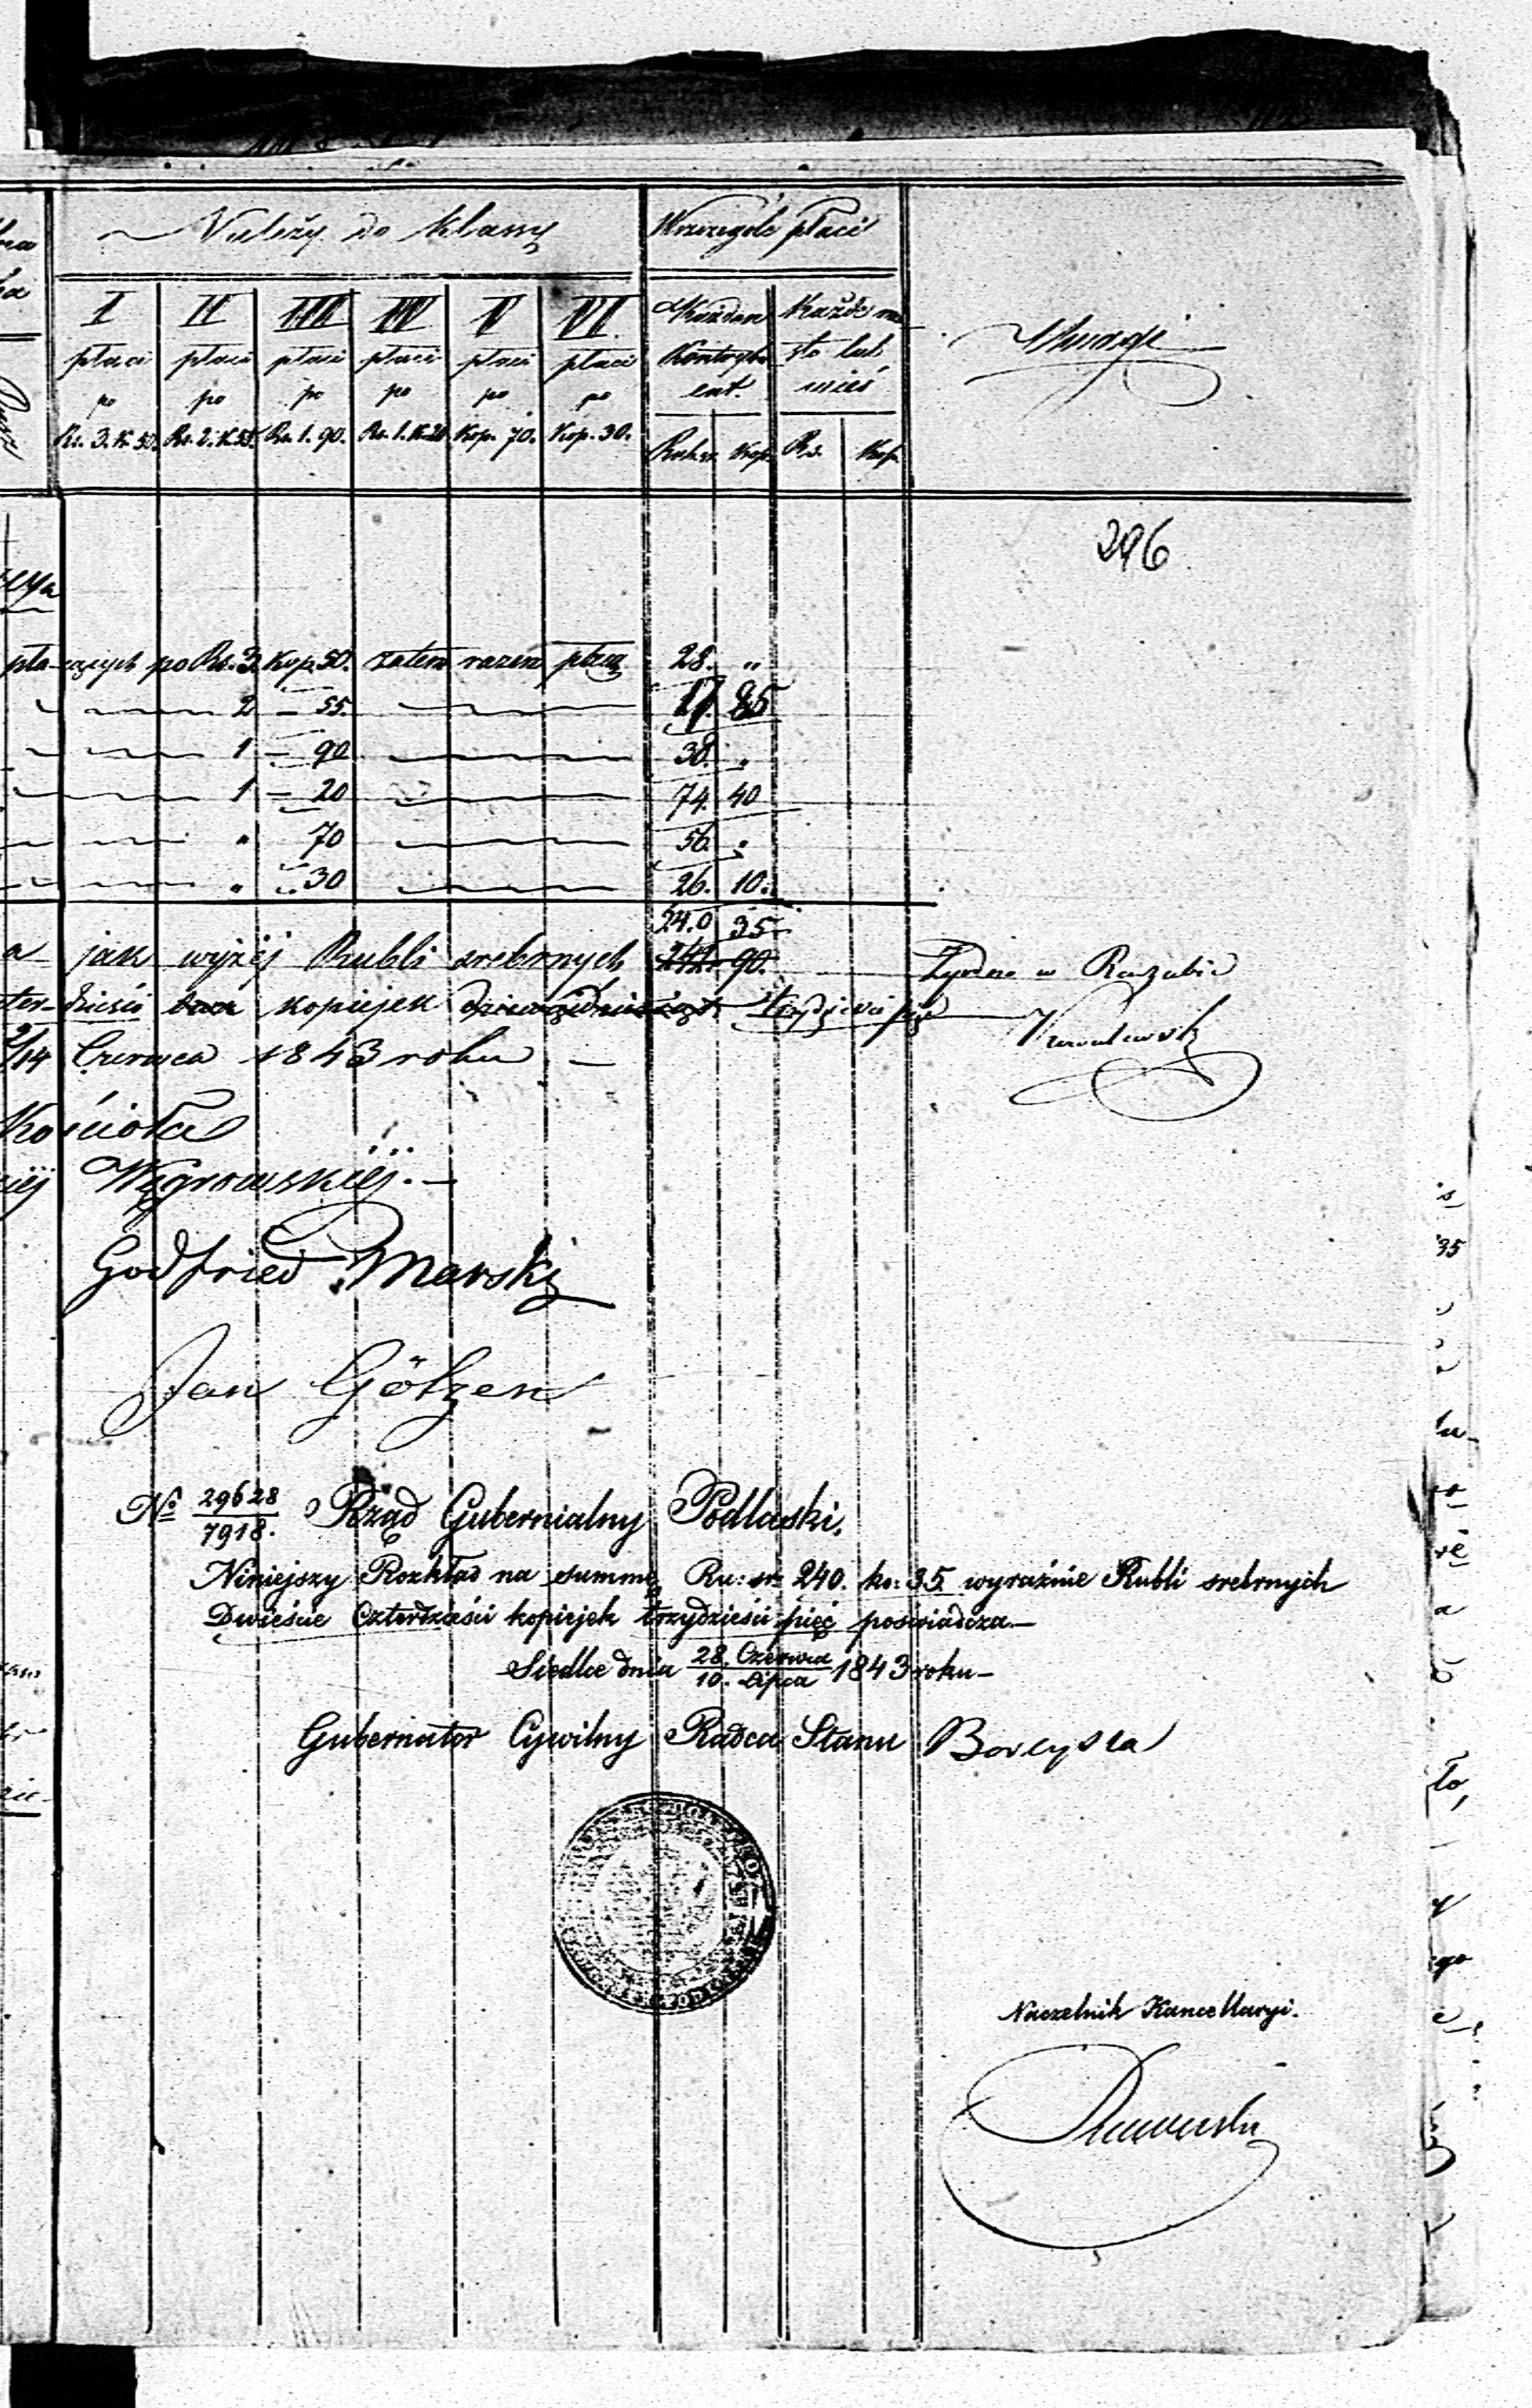 Należy do klassy
Wszczególe płacić
I II III IV V VI
płaci płaci płaci płaci płaci płaci
po po po po po po
Rs. 3. K. 50. Rs. 2. K. 55. Rs. 1. 90. Rs. 1. K. 20 Kop. 70. Kop. 30.
Każden Kontrybuent.
Każde miasto lub wieś
Rub. sr. Kop. Rs. Kop.
Uwagi
296
płacących po Rs. 3. Kop. 50. zatem razem płacą 28. "
2 – 55. 17. 85
1 – 90 38. "
1 – 20 74. 40
" 70 56. "
" 30 26. 10.
240 35
a jak wyżej Rubli srebrnych 242. 90.
dzieści dwa kopiejek dziewiędziesiąt trzydzieści pięć
2/14 Czerwca 1843 roku –
Kościoła
Węgrowskiéj. –
Godfried Marski
Jan Götzen
No 29628/7918. Rząd Gubernialny Podlaski.
Niniejszy Rozkład na summę Ru: sr: 240. ko: 35 wyraźnie Rubli srebrnych
Dwieście Czterdzieści kopiejek trzydzieści pięć poświadcza. –
Siedlce dnia 28. Czerwca / 10. Lipca 1843 roku –
Gubernator Cywilny Radca Stanu
Naczelnik Kancellaryi.